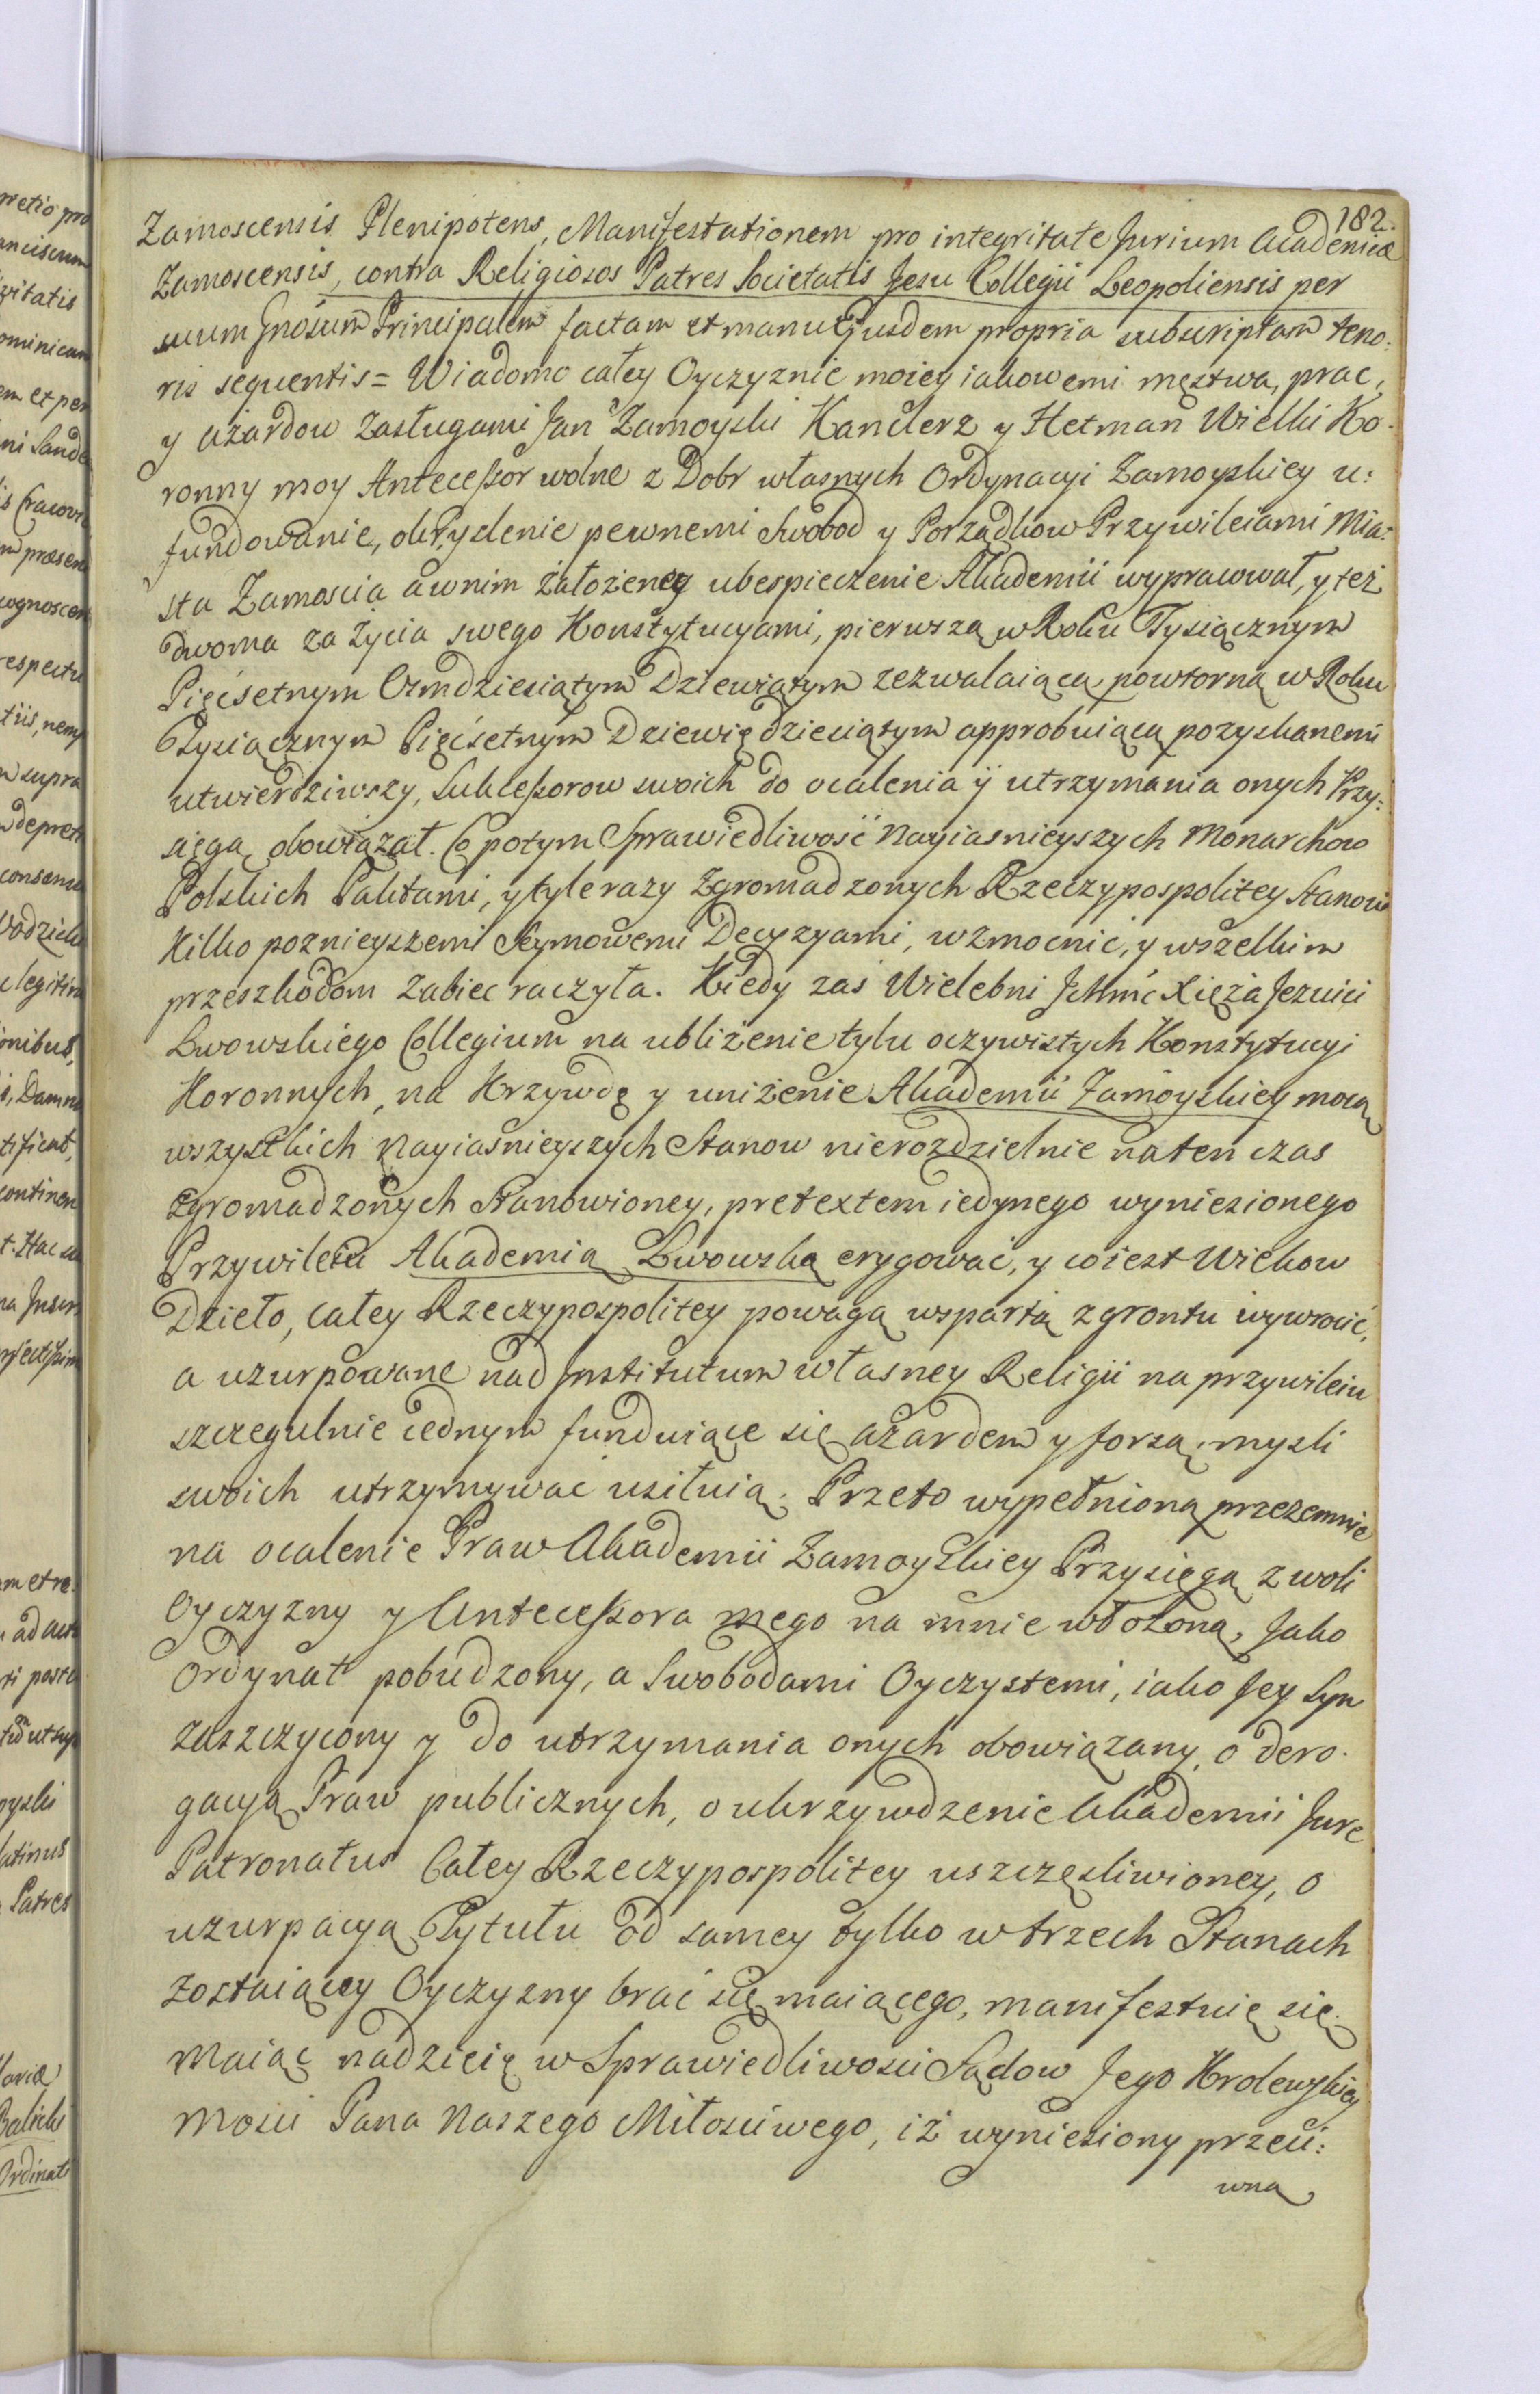 182.
Zamoscensis Plenipotens, Manifestationem pro integritate Jurium Academiæ
Zamoscensis, contra Religiosos Patres Societatis Jesu Collegii Leopoliensis per
suum Gnosum Principalem factam et manu Ejusdem propria subscriptam teno:
ris sequentis = Wiadomo całey Oyczyznie moiey iakowemi męstwa, prac,
y ażardow zasługami Jan Zamoyski Kanclerz y Hetman Wielki Ko-
ronny moy Antecessor wolne z Dobr własnych Ordynacyi Zamoyskiey u:
fundowanie, okryslenie pewnemi Swobod y Porządkow Przywileiami Mia:
sta Zamoscia a w nim założeney ubespieczenie Akademii wypracował, y też
dwoma za życia swego Konstytucyami, pierwszą w Roku Tysiącznym
Pięćsetnym Osmdziesiątym Dziewiątym zezwalaiącą, powtorną w Roku
Tysiącznym Pięćsetnym Dziewiędzieciątym approbuiącą pozyskanemi
utwierdziwszy, Sukcessorow swoich do ocalenia ÿ utrzymania onych Przy:
sięgą obowiązał. Co potym Sprawiedliwość Nayiasnieyszych Monarchow
Polskich Paktami, y tyle razy zgromadzonych Rzeczypospolitey Stanow
Kilko poznieyszemi Seymowemi Decyzyami, wzmocnić, y wszelkim
przeszkodom zabiec raczyła. Kiedy zaś Wielebni Jchmć Xięża Jezuici
Lwowskiego Collegium na ubliżenie tylu oczywistych Konstytucyi
Koronnych, na Krzywdę y uniżenie Akademii Zamoyskiey mocą
wszystkich Nayiaśnieyszych Stanow nierozdzielnie na ten czas
zgromadzonych Stanowioney, pretextem iedynego wyniesionego
Przywileiu Akademią Lwowską erygować, y co iest Wiekow
Dzieło, całey Rzeczypospolitey powagą wspartą z grontu wywrocić,
a uzurpowane nad Institutum własney Religii na przywileiu
szczegulnie iednym funduiące się ażardem y forsą, mysli
swoich utrzymywać usiłuią. Przeto wypełnioną przezemnie
na ocalenie Praw Akademii Zamoyskiey Przysięgą z woli
Oyczyzny y Antecessora mego na mnie włożoną, Jako
Ordynat pobudzony, a Swobodami Oyczystemi, iako Jey Syn
zaszczycony y do utrzymania onych obowiązany, o dero-
gacyą Praw publicznych, o ukrzywdzenie Akademii Jure
Patronatus Całey Rzeczypospolitey uszczęsliwioney, o
uzurpacyą Tytułu od samey tylko w trzech Stanach
zostaiącey Oyczyzny brać się maiącego, manifestuię się.
Maiąc nadzieię w Sprawiedliwosci Sądow Jego Krolewskiey
Mosci Pana Naszego Miłosciwego, iż wyniesiony przeci:
wna